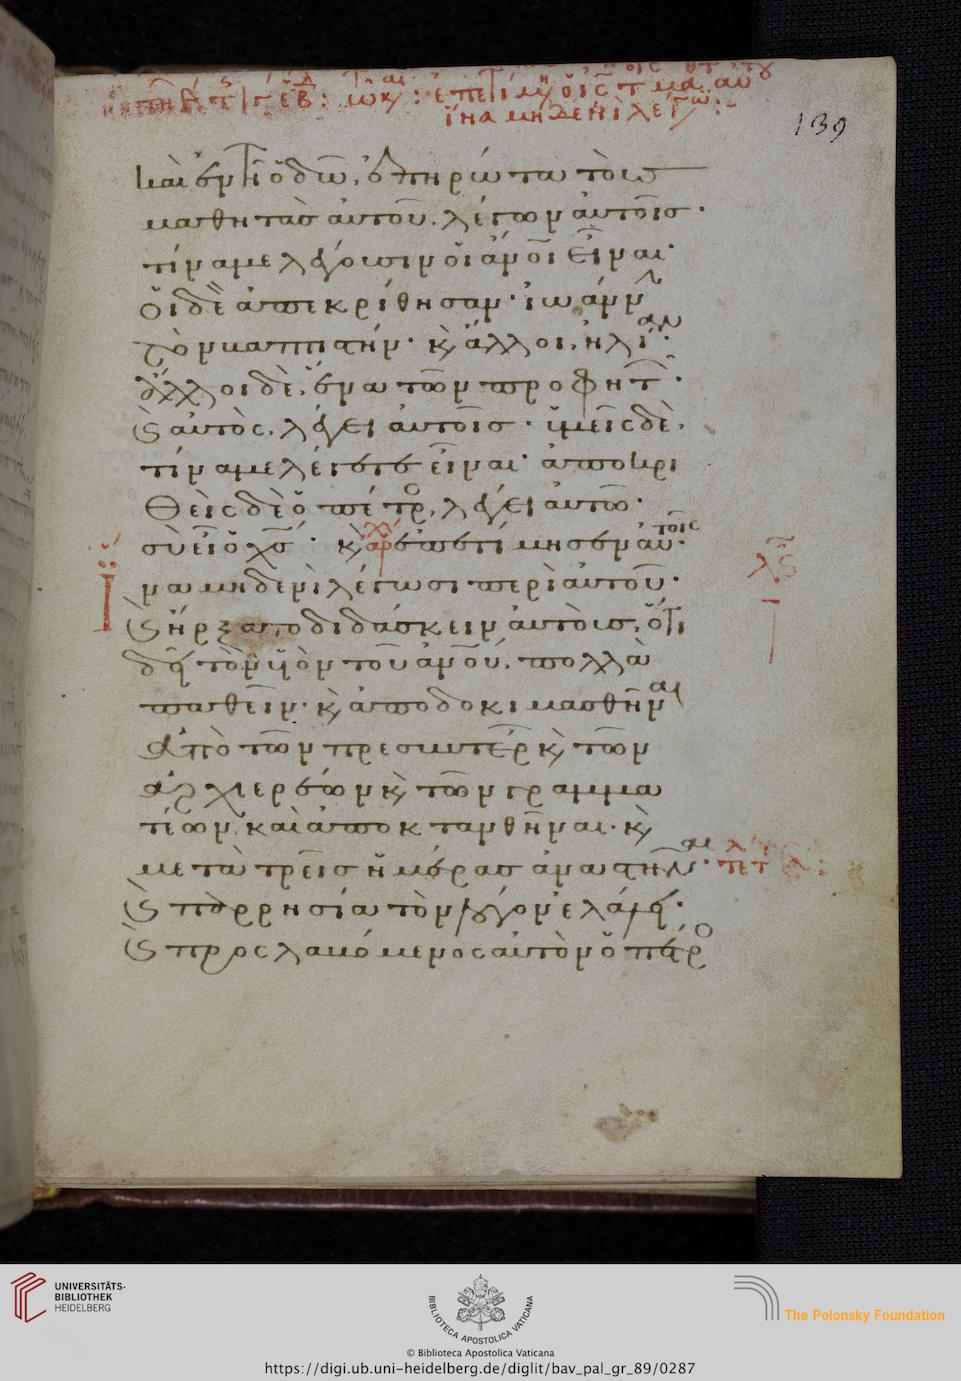 139
καὶ ἐν τῆ ὁδῶ, ἐπηρώτα τοὺς
μαθητὰς αὐτοῦ. λέγων αὐτοῖς·
τίνα με λέγουσιν οἱ ἄνοι εἶναι·
οἱ δὲ ἀπεκρίθησαν· ἰωάνν
τὸν βαπτιστήν· κ ἄλλοι, ἠλίαν·
ἄλλοι δὲ, ἕνα τῶν προφητ·
κ αὐτὸς, λέγει αὐτοῖς· ὑμεῖς δὲ,
τίνα με λέγετε εἶναι· ἀποκρι
θεὶς δὲ ὁ πέτρο, λέγει αὐτῶ·
σὺ εἶ ὁ χς· κ ἐπετίμησεν αὐτοῖς·
ἵνα μηδενὶ λέγωσι περὶ αὐτοῦ·
κ ἤρξατο διδάσκειν αὐτοὺς, ὅτι
δεῖ τὸν υἱὸν τοῦ ἀνου, πολλὰ
παθεῖν· κ ἀποδοκιμασθῆναι
ἀπὸ τῶν πρεσβυτέρ κ τῶν
ἀρχιερέων κ τῶν γραμμα
τέων, καὶ ἀποκτανθῆναι· κ
μετὰ τρεῖς ἡμέρας ἀναστῆναι·
κ παρρησία τὸν λόγον ἐλάλει·
κ προσλαβόμενος αὐτὸν ὁ πέτρο
UNIVERSITÄTS-
BIBLIOTHEK
HEIDELBERG
BIBLIOTECA APOSTOLICA VATICANA
The Polonsky Foundation
© Biblioteca Apostolica Vaticana
https://digi.ub.uni-heidelberg.de/diglit/bav_pal_gr_89/0287